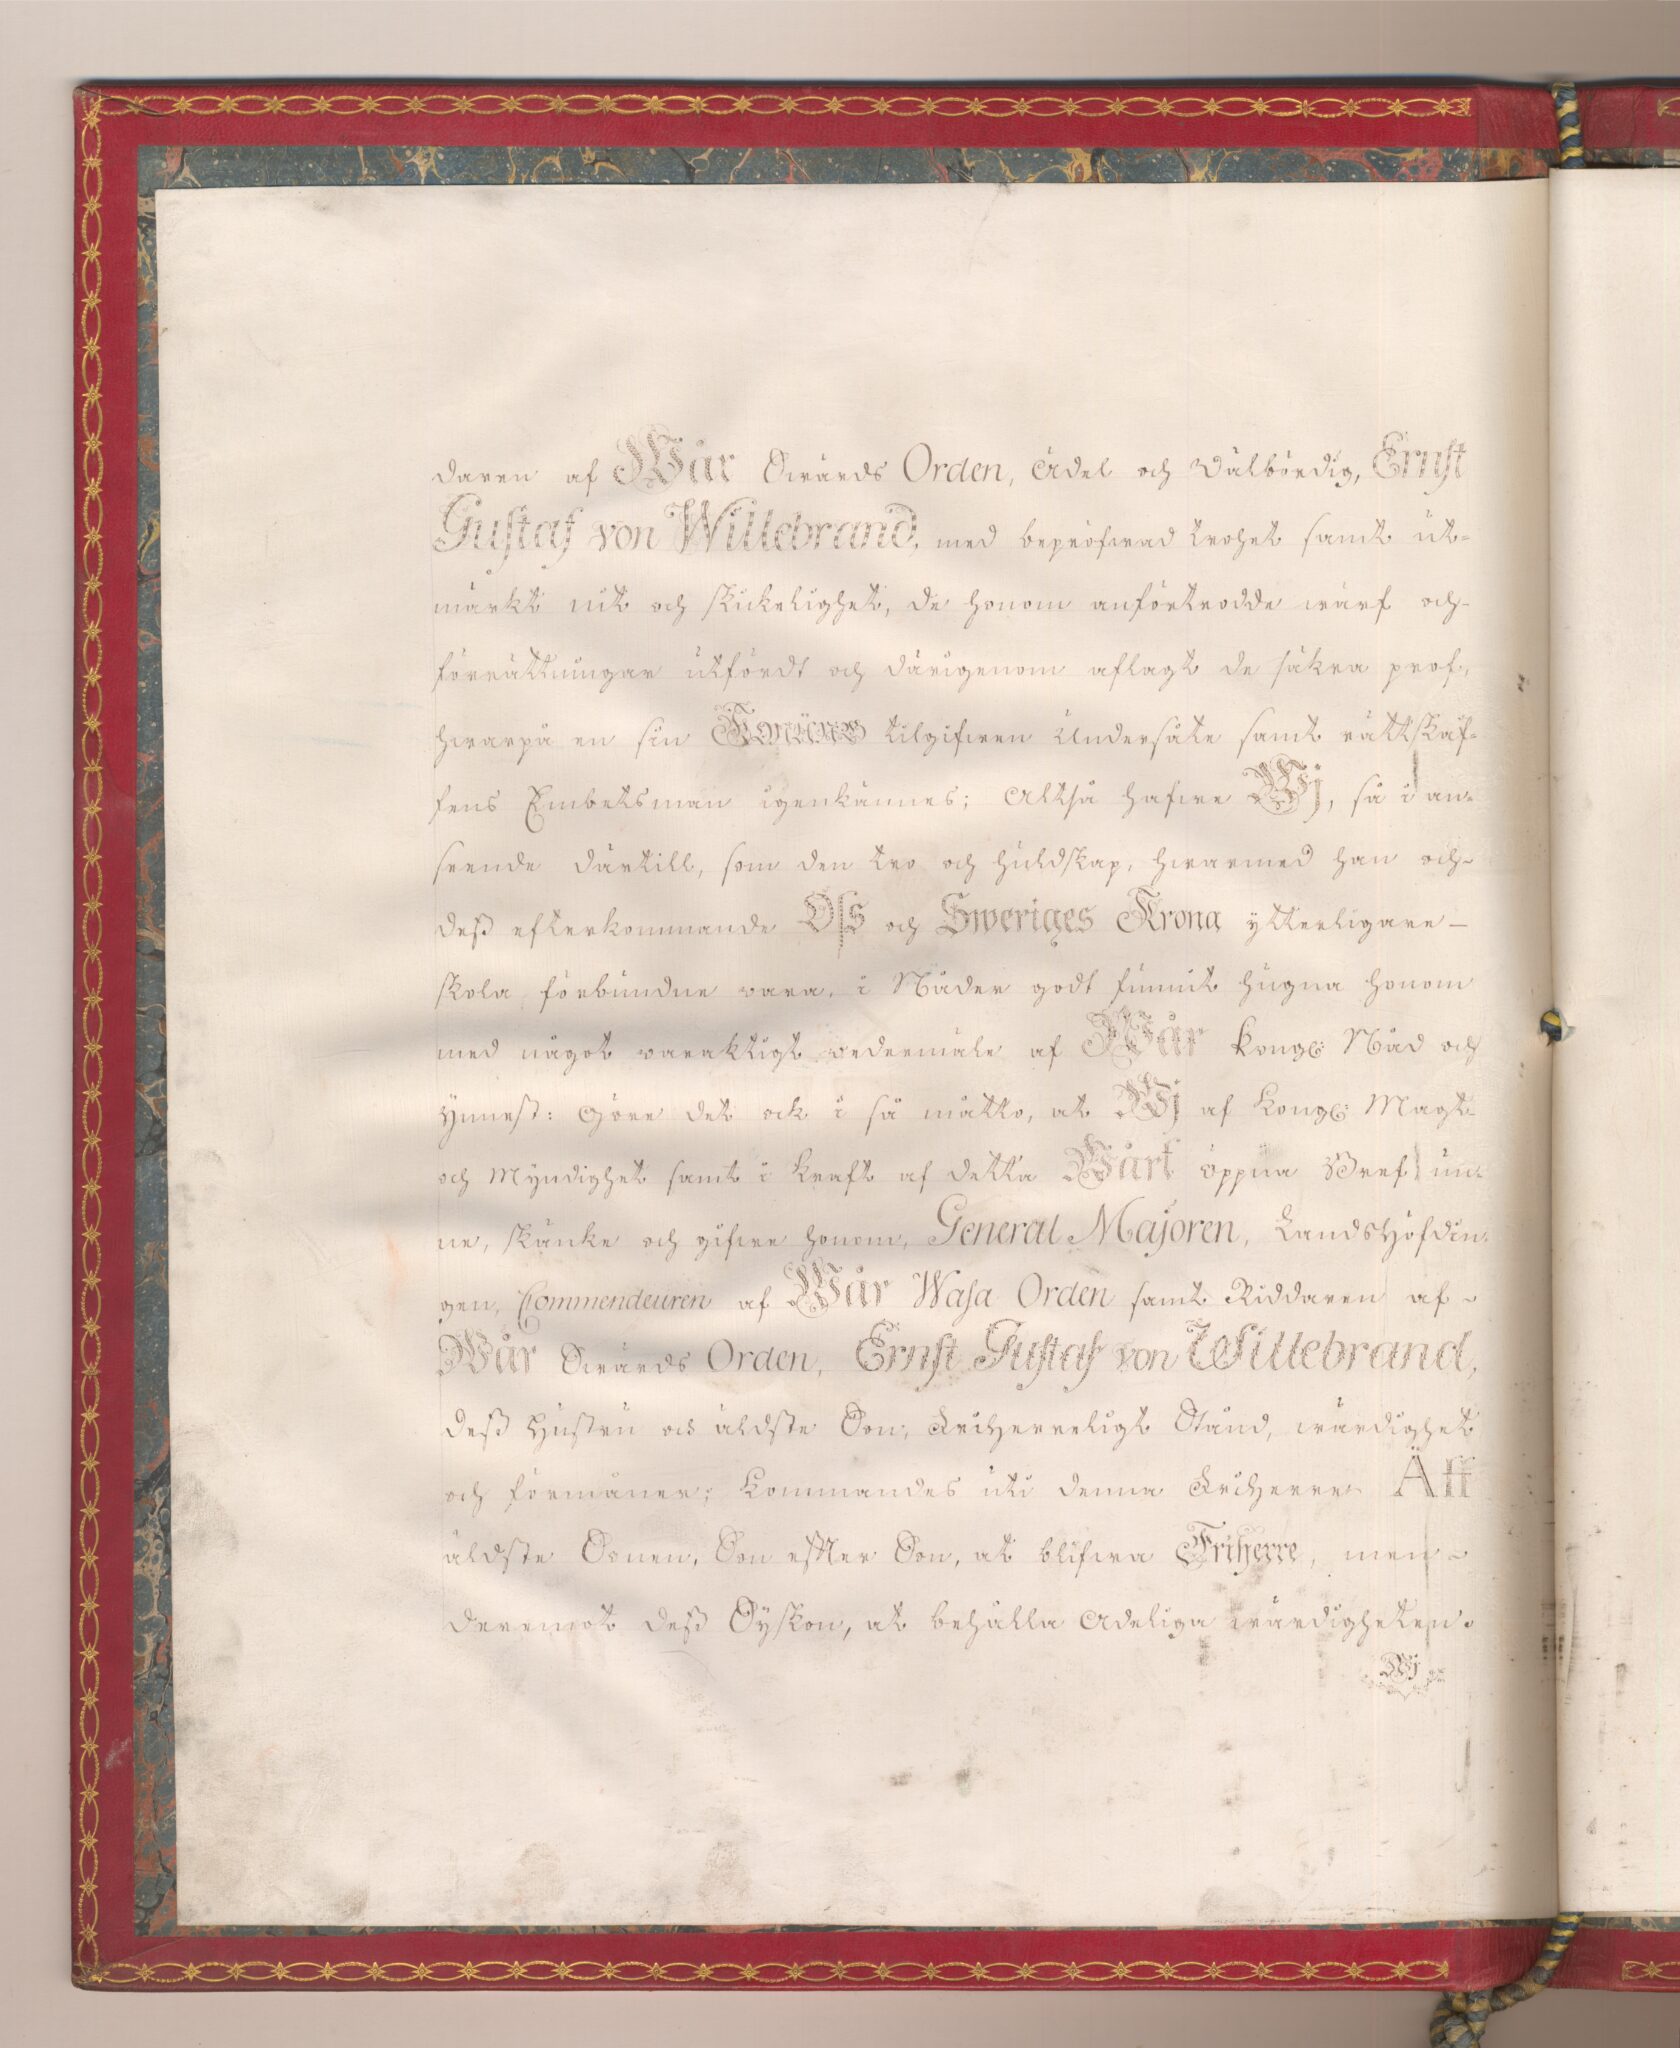 daren af Wår Swärds Orden, Ädel och Välbördig, Ernst
Gustaf von Willebrand, med bepröfwad trohet samt ut-
märkt nit och skickelighet, de honom anförtrodde wärf och
förrättningar utfördt och därigenom aflagt de säkra prof,
hwarpå en sin tilgifwen Undersåte samt rättskaf-
fens Embetsman igenkännes; Altså hafwe Wj, så i an-
seende därtill, som den tro och huldskap, hwarmed han och
deß efterkommande Oss och Sweriges Krona ytterligare
skola förbundne vara, i Nåder godt funnit hugna honom
med något varaktigt vedermäle af Wår Kongl: Nåd och
Ynnest: Göre det ock i så måtto, at Wj af Kongl: Magt
och Myndighet samt i kraft af detta Wårt öppna Bref un-
ne, skänke och gifwe honom, General Majoren, Landshöfdin-
gen, Commendeuren af Wår Wasa Orden samt Riddaren af
Wår Swärds Orden, Ernst Gustaf von Willebrand,
deß Hustru och äldste Son, Friherreligt Stånd, wärdighet
och förmåner; kommandes uti denna Friherre Ätt
äldste Sonen, Son efter Son, at blifwa Friherre, men
deremot deß Syskon, at behålla Adeliga wärdigheten.
Wj